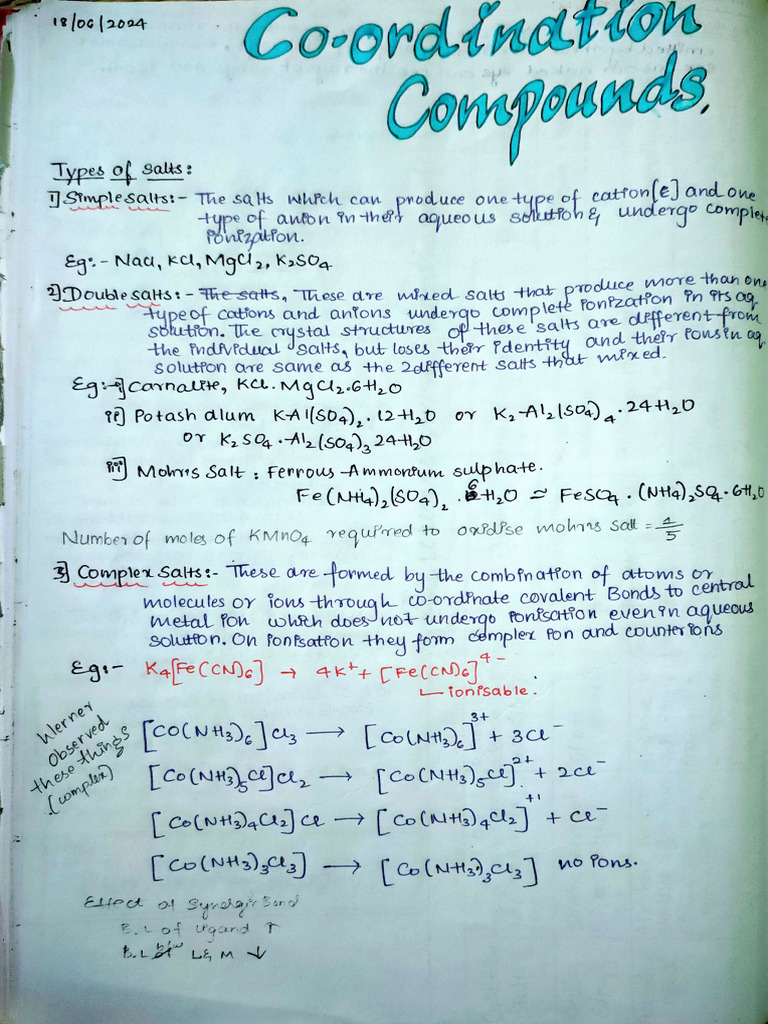 18/06/2024
Co-ordination
Compounds.
Types of salts:
1] Simple salts:- The salts which can produce one type of cation [E] and one
type of anion in their aqueous solution & undergo complete
ionization.
Eg:- NaCl, KCl, MgCl2, K2SO4
2] Double salts:- The salts, These are mixed salts that produce more than one
type of cations and anions undergo complete ionization in its aq
solution. The crystal structures of these salts are different from
the individual salts, but loses their identity and their ions in aq
solution are same as the 2 different salts that mixed.
Eg:- i] Carnalite, KCl. MgCl2.6H2O
ii] Potash alum K-Al(SO4)2 . 12H2O or K2-Al2(SO4)4 . 24H2O
or K2SO4.-Al2(SO4)3 24H2O
iii] Mohris Salt : Ferrous-Ammonium sulphate.
Fe(NH4)2(SO4)2 . 6H2O ≈ FeSO4 . (NH4)2SO4.6H2O
Number of moles of KMnO4 required to oxidise mohris salt = 1/5
3] Complex Salts:- These are formed by the combination of atoms or
molecules or ions through co-ordinate covalent Bonds to central
metal ion which does not undergo ionisation even in aqueous
solution. On ionisation they form complex ion and counter ions
Eg:- K4[Fe(CN)6] → 4K+ + [Fe(CN)6]4-
ionisable.
Werner
observed
these things
(complex)
[CO(NH3)6]Cl3 → [Co(NH3)6]3+ + 3Cl-
[Co(NH3)5Cl]Cl2 → [Co(NH3)5Cl]2+ + 2Cl-
[Co(NH3)4Cl2]Cl → [Co(NH3)4Cl2]+1 + Cl-
[Co(NH3)3Cl3] → [Co(NH3)3Cl3] no ions.
Effect of Synergic Bond
B.L of ligand ↑
B.L b/w L & M ↓